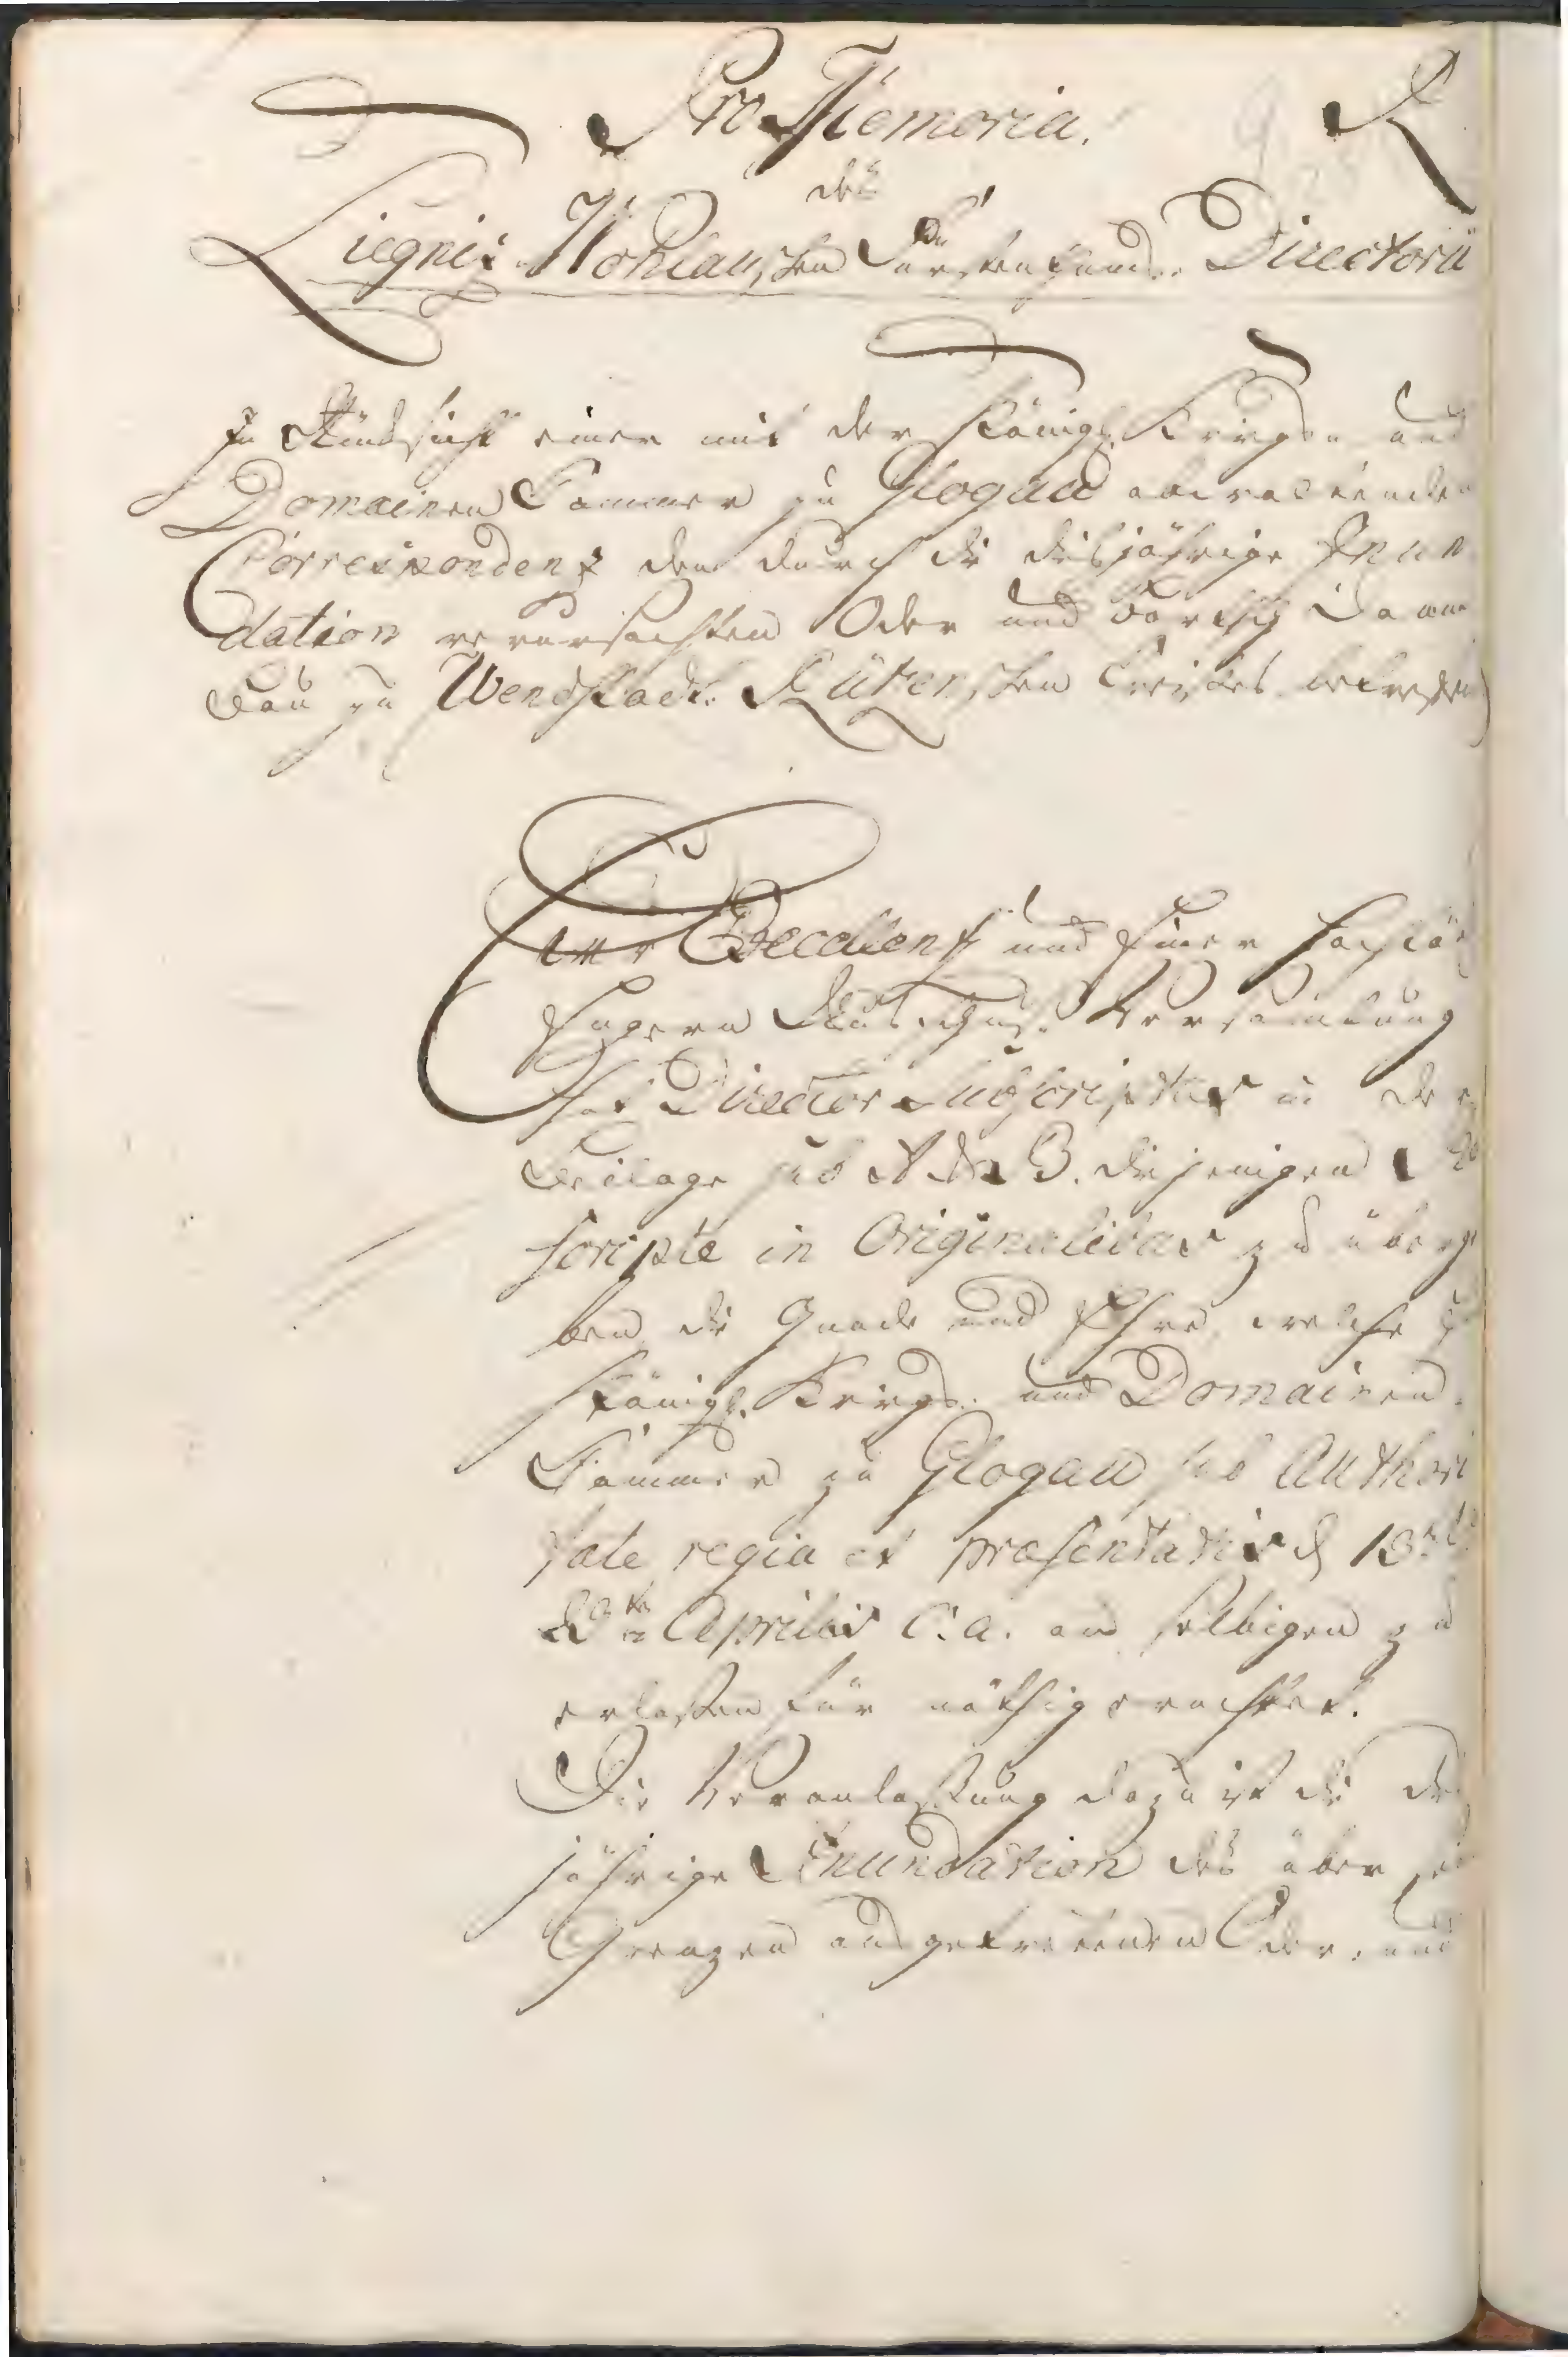 Pro Memoria. R
des
Liegnitz Wohlauschen Fürstenthums Directorii
In Rücksicht einer mit der Königl. Krieges und
Domainen Cammer zu Glogau obwaltenden
Correspondenz den durch die diesjährige Inun
dation verursachten Oder und Bartsch Damm
Bau zu Wendstadt Gürkenschen Creises betreffend
Eur Excellenz und Einer Hochlöb
Engern Ausschuß Versamlung
hat Director Subscriptus in der
Beilage sub A et B. diejenigen Re
scripte in Originalibus zu überge
ben die Gnade und Ehre, welche die
Königl. Krieges und Domainen
Cammer zu Glogau sub Authori
tate regia et praesentatis d 13ten
23ten Aprilis c. a. an selbigen zu
erlaßen für nöthig erachtet.
Die Veranlaßung dazu ist die dies
jährige Inundation des über sei
Grenzen ausgetretenen Oder, und